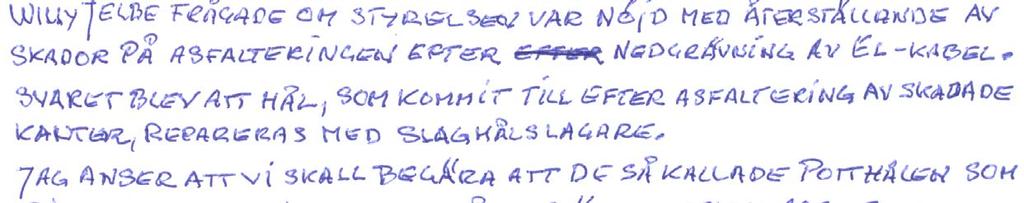 WILLY JELBE FRÅGADE OM STYRELSEN VAR NÖJD MED ÅTERSTÄLLANDE AV
SKADOR PÅ ASFALTERINGEN EFTER EFTER NEDGRÄVNING AV EL-KABEL.
SVARET BLEV ATT HÅL, SOM KOMMIT TILL EFTER ASFALTERING AV SKADADE
KANTER, REPARERAS MED SLAGHÅLSLAGARE.
JAG ANSER ATT VI SKALL BEGÄRA ATT DE SÅ KALLADE POTTHÅLEN SOM